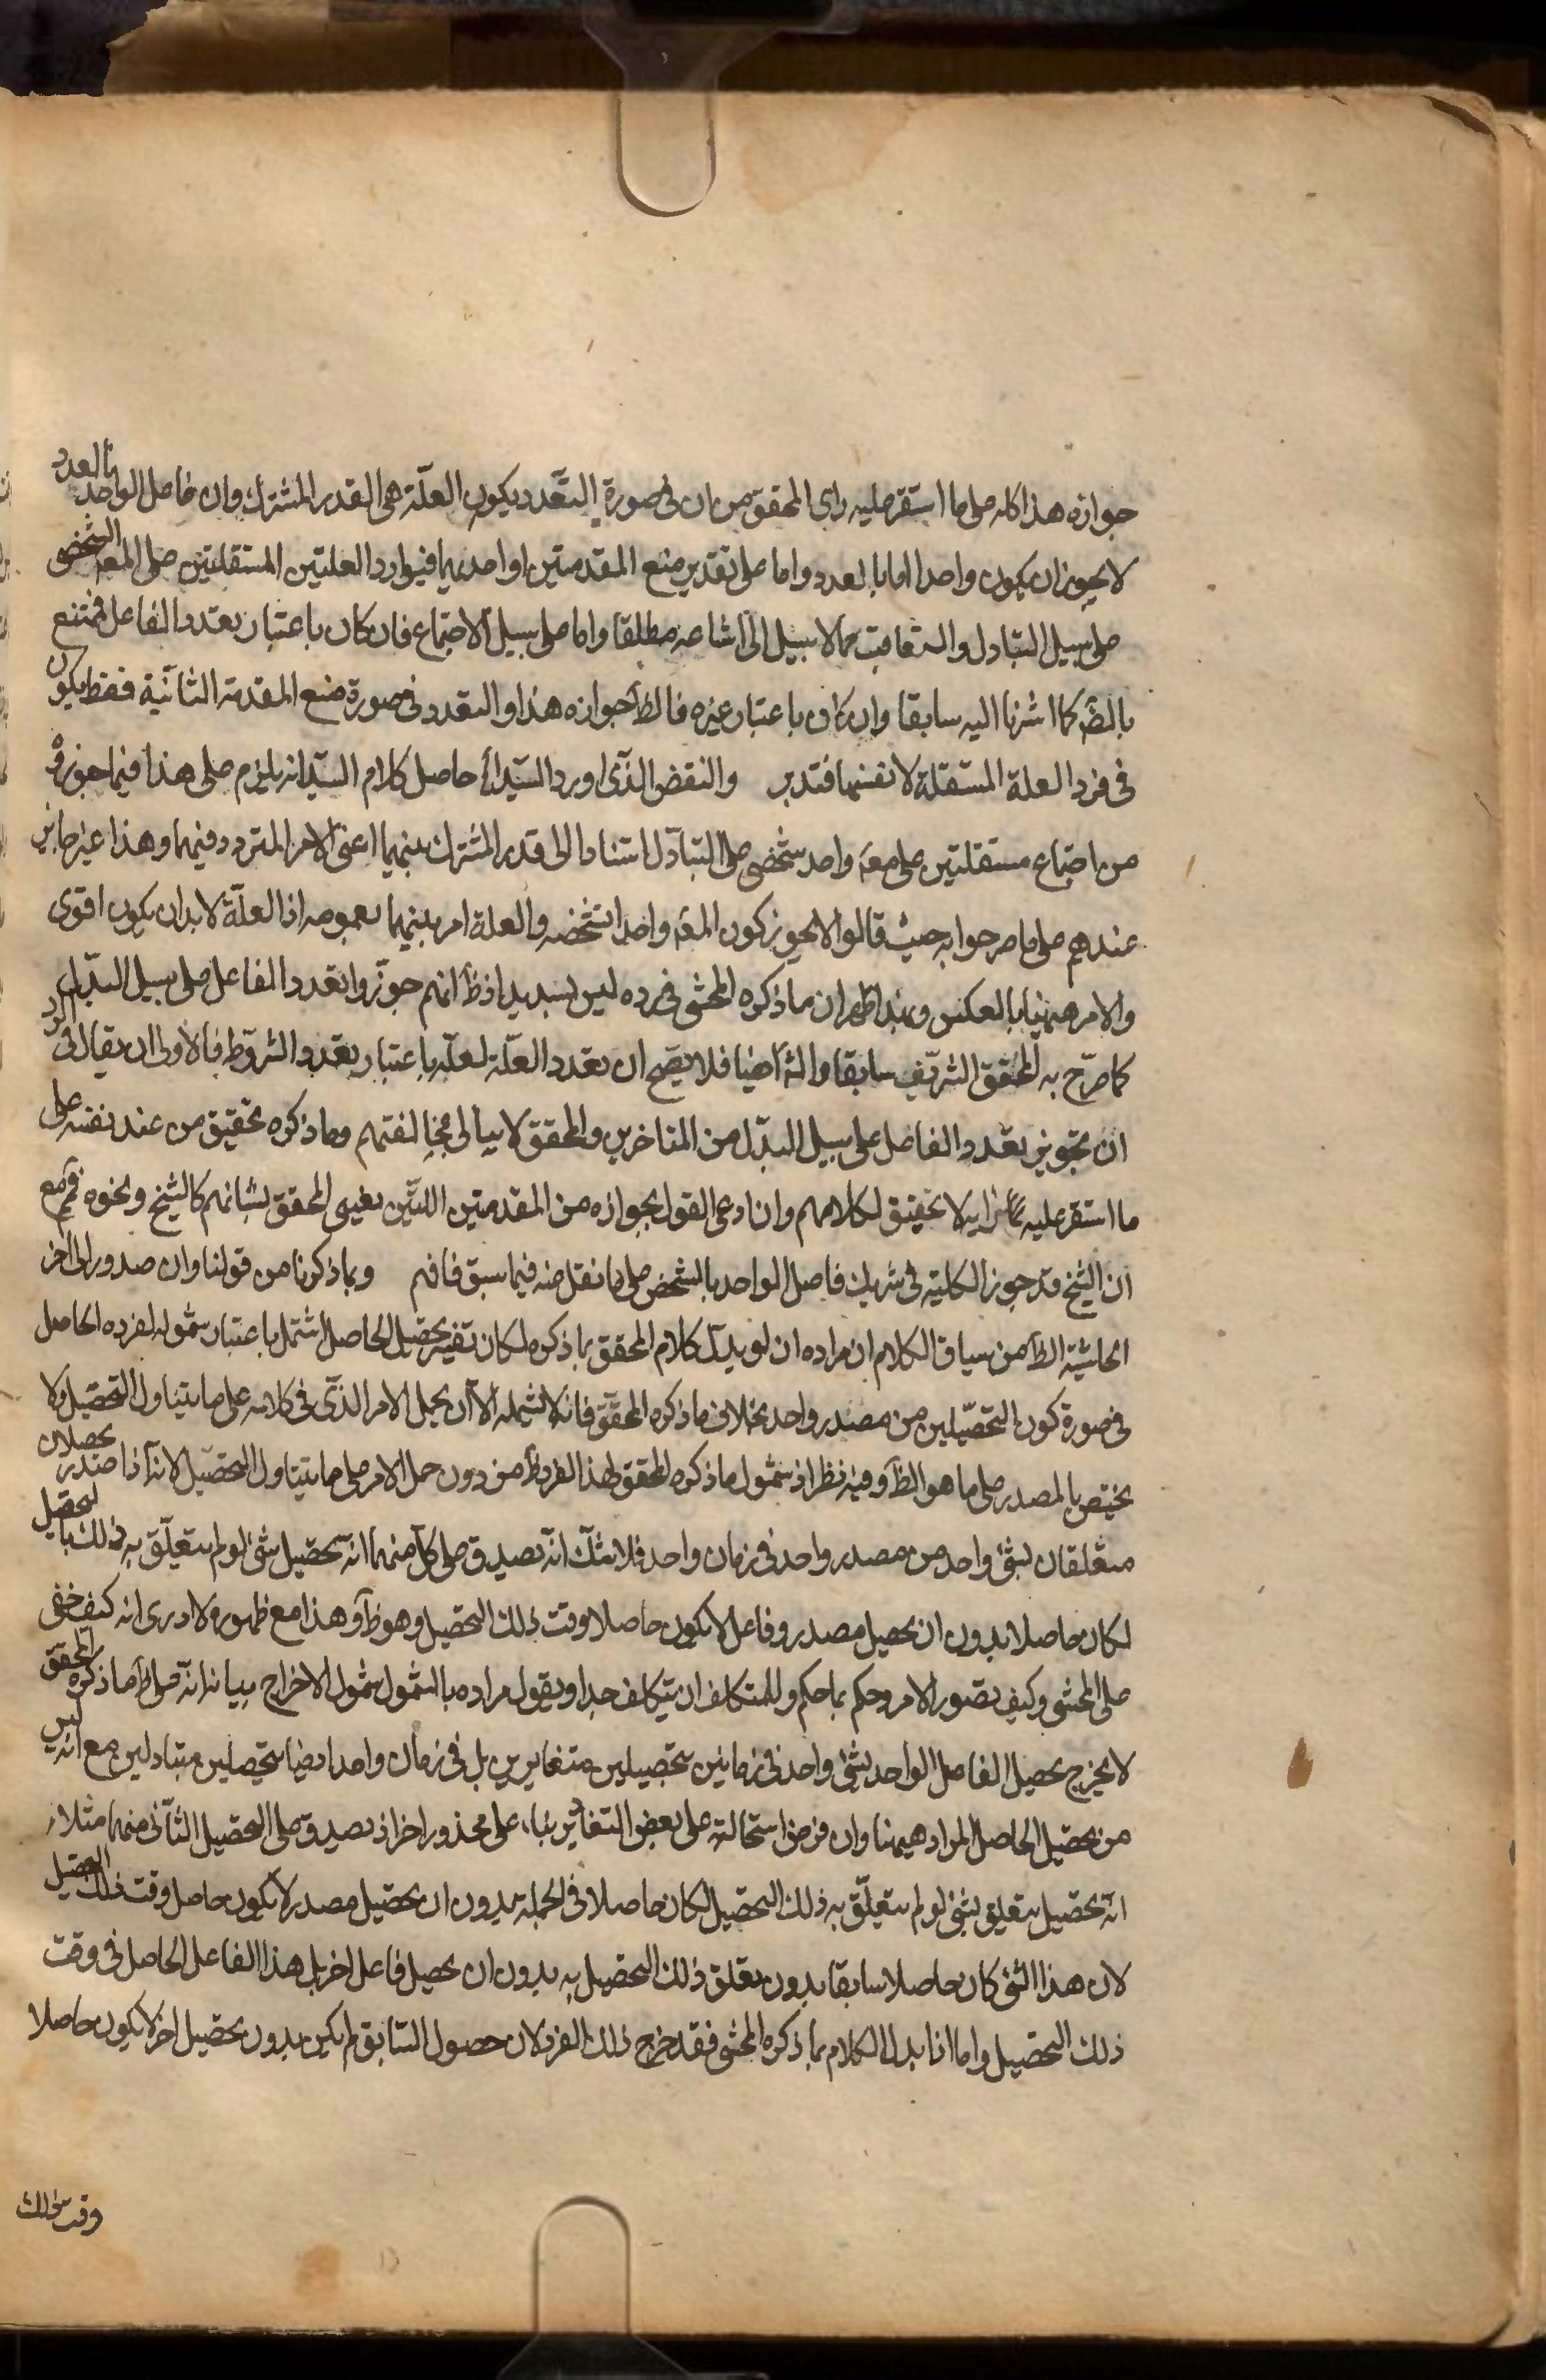 جوازه هذا كله على ما استقر عليه راى المحقق من ان فى صورة التعدد يكون العلّة هى القدر المشترك وان فاعل الواحد بالعدد
لا يجوز ان يكون واحدا اما بالعدد واما على تقدير منع المقدمتين او احديهما فيوارد العلتين المستقلتين على المعه الشخصى
على سبيل التبادل والتعاقب مما لا سبيل الى اشاعه مطلقا واما على سبيل الاجتماع فان كان باعتبار تعدد الفاعل فممتنع
بالضم كما اشرنا اليه سابقا وان كان باعتبار غيره فالظ جوازه هذا والتعدد فى صورة منع المقدمة الثانية فقط يكون
فى فرد العلة المستقلة لا نفسها فتدبر والنقض الذى اورد السيد الخ حاصل كلام السيّد انه يلزم على هذا فيما جوزوه
من اجتماع مستقلتين على معه واحد شخصى على التبادل استنادا الى قدر المشترك بينهما اعنى الامر المتردد فيهما وهذا غير جايز
عندهم على ما صرحوا به حيث قالوا لا يجوز كون المعه واحدا بشخصه والعلة امر بينهما بعمومه اذ العلّة لا بد ان يكون اقوى
والامر ههنا بالعكس وبهذا ظهر ان ما ذكره المحشى فى رده ليس بسديد اذ ظ انهم جوّزوا تعدد الفاعل على سبيل البدل
كما صرّح به المحقق الشريف سابقا والخ ايضا فلا يصح ان تعدد العلّة لعلّه باعتبار تعدد الشروط فالاولى ان يقال فى الرد
ان تجويز تعدد الفاعل على سبيل البدل من المتاخرين والمحقق لا يبالى بمخالفتهم وما ذكره تحقيق من عند نفسه على
ما استقر عليه رايه لا تحقيق لكلامهم وان ادعى القول بجوازه من المقدمتين اللتين يعنى المحقق بشانهم كالشيخ ونحوه فمم مع
ان الشيخ قد جوز الكلية فى شريك فاعل الواحد بالشخص على ما نقل منه فيما سبق فافهم وبما ذكرنا من قولنا وان صدور الى اخر
الحاشية الظ من سياق الكلام ان مراده ان لو بدل كلام المحقق بما ذكره لكان تفسير تحصيل الحاصل اشمل باعتبار شموله لفرده الحاصل
فى صورة كون التحصيلين من مصدر واحد بخلاف ما ذكره المحقق فانه لا يشمله الا ان يحمل الامر الذى فى كلامه على ما يتناول التحصيل ولا
يختص بالمصدر على ما هو الظ وفيه نظر اذ شمول ما ذكره المحقق لهذا الفرد ظ من دون حمل الامر على ما يتناول التحصيل لانه اذا صدر تحصيلان
متعلقان بشئ واحد من مصدر واحد فى زمان واحد فلا شك انه يصدق على كل منهما انه تحصيل شئ لو لم يتعلّق به ذلك التحصيل
لكان حاصلا بدون ان يحصل مصدر وفاعل لا يكون حاصلا وقت ذلك التحصيل وهو ظ وهذا مع ظهوره لا ادرى انه كيف خفى
على المحشى وكيف تصور الامر وحكم بما حكم وللمتكلف ان يتكلف جدا ويقول مراده بالشمول شمول الاخراج بيانه انه على ما ذكره المحقق
لا يخرج تحصيل الفاعل الواحد لشئ واحد فى زمانين بتحصيلين متغايرين بل فى زمان واحد ايضا بتحصيلين متبادلين مع انه ليس
من تحصيل الحاصل المراد ههنا وان فرض استحالته على بعض التقادير بناء على محذور اخر اذ يصدق على التحصيل الثانى منهما مثلا
انه تحصيل يتعلق بشئ لو لم يتعلّق به ذلك التحصيل لكان حاصلا فى الجملة بدون ان تحصيل مصدر لا يكون حاصل وقت ذلك التحصيل
لان هذا الشئ كان حاصلا سابقا بدون تعلق ذلك التحصيل به بدون ان يحصل فاعل اخر بل هذا الفاعل الحاصل فى وقت
ذلك التحصيل واما اذا بدل الكلام بما ذكره المحشى فقد خرج ذلك الفرد لان حصول السابق لم يكن بدون تحصيل اخر لا يكون حاصلا
وقت ذلك